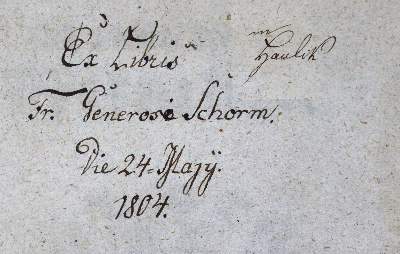 Ex Libris
Fr. Generosi Schorm.
Die 24= Majÿ.
1804.
Hawlik